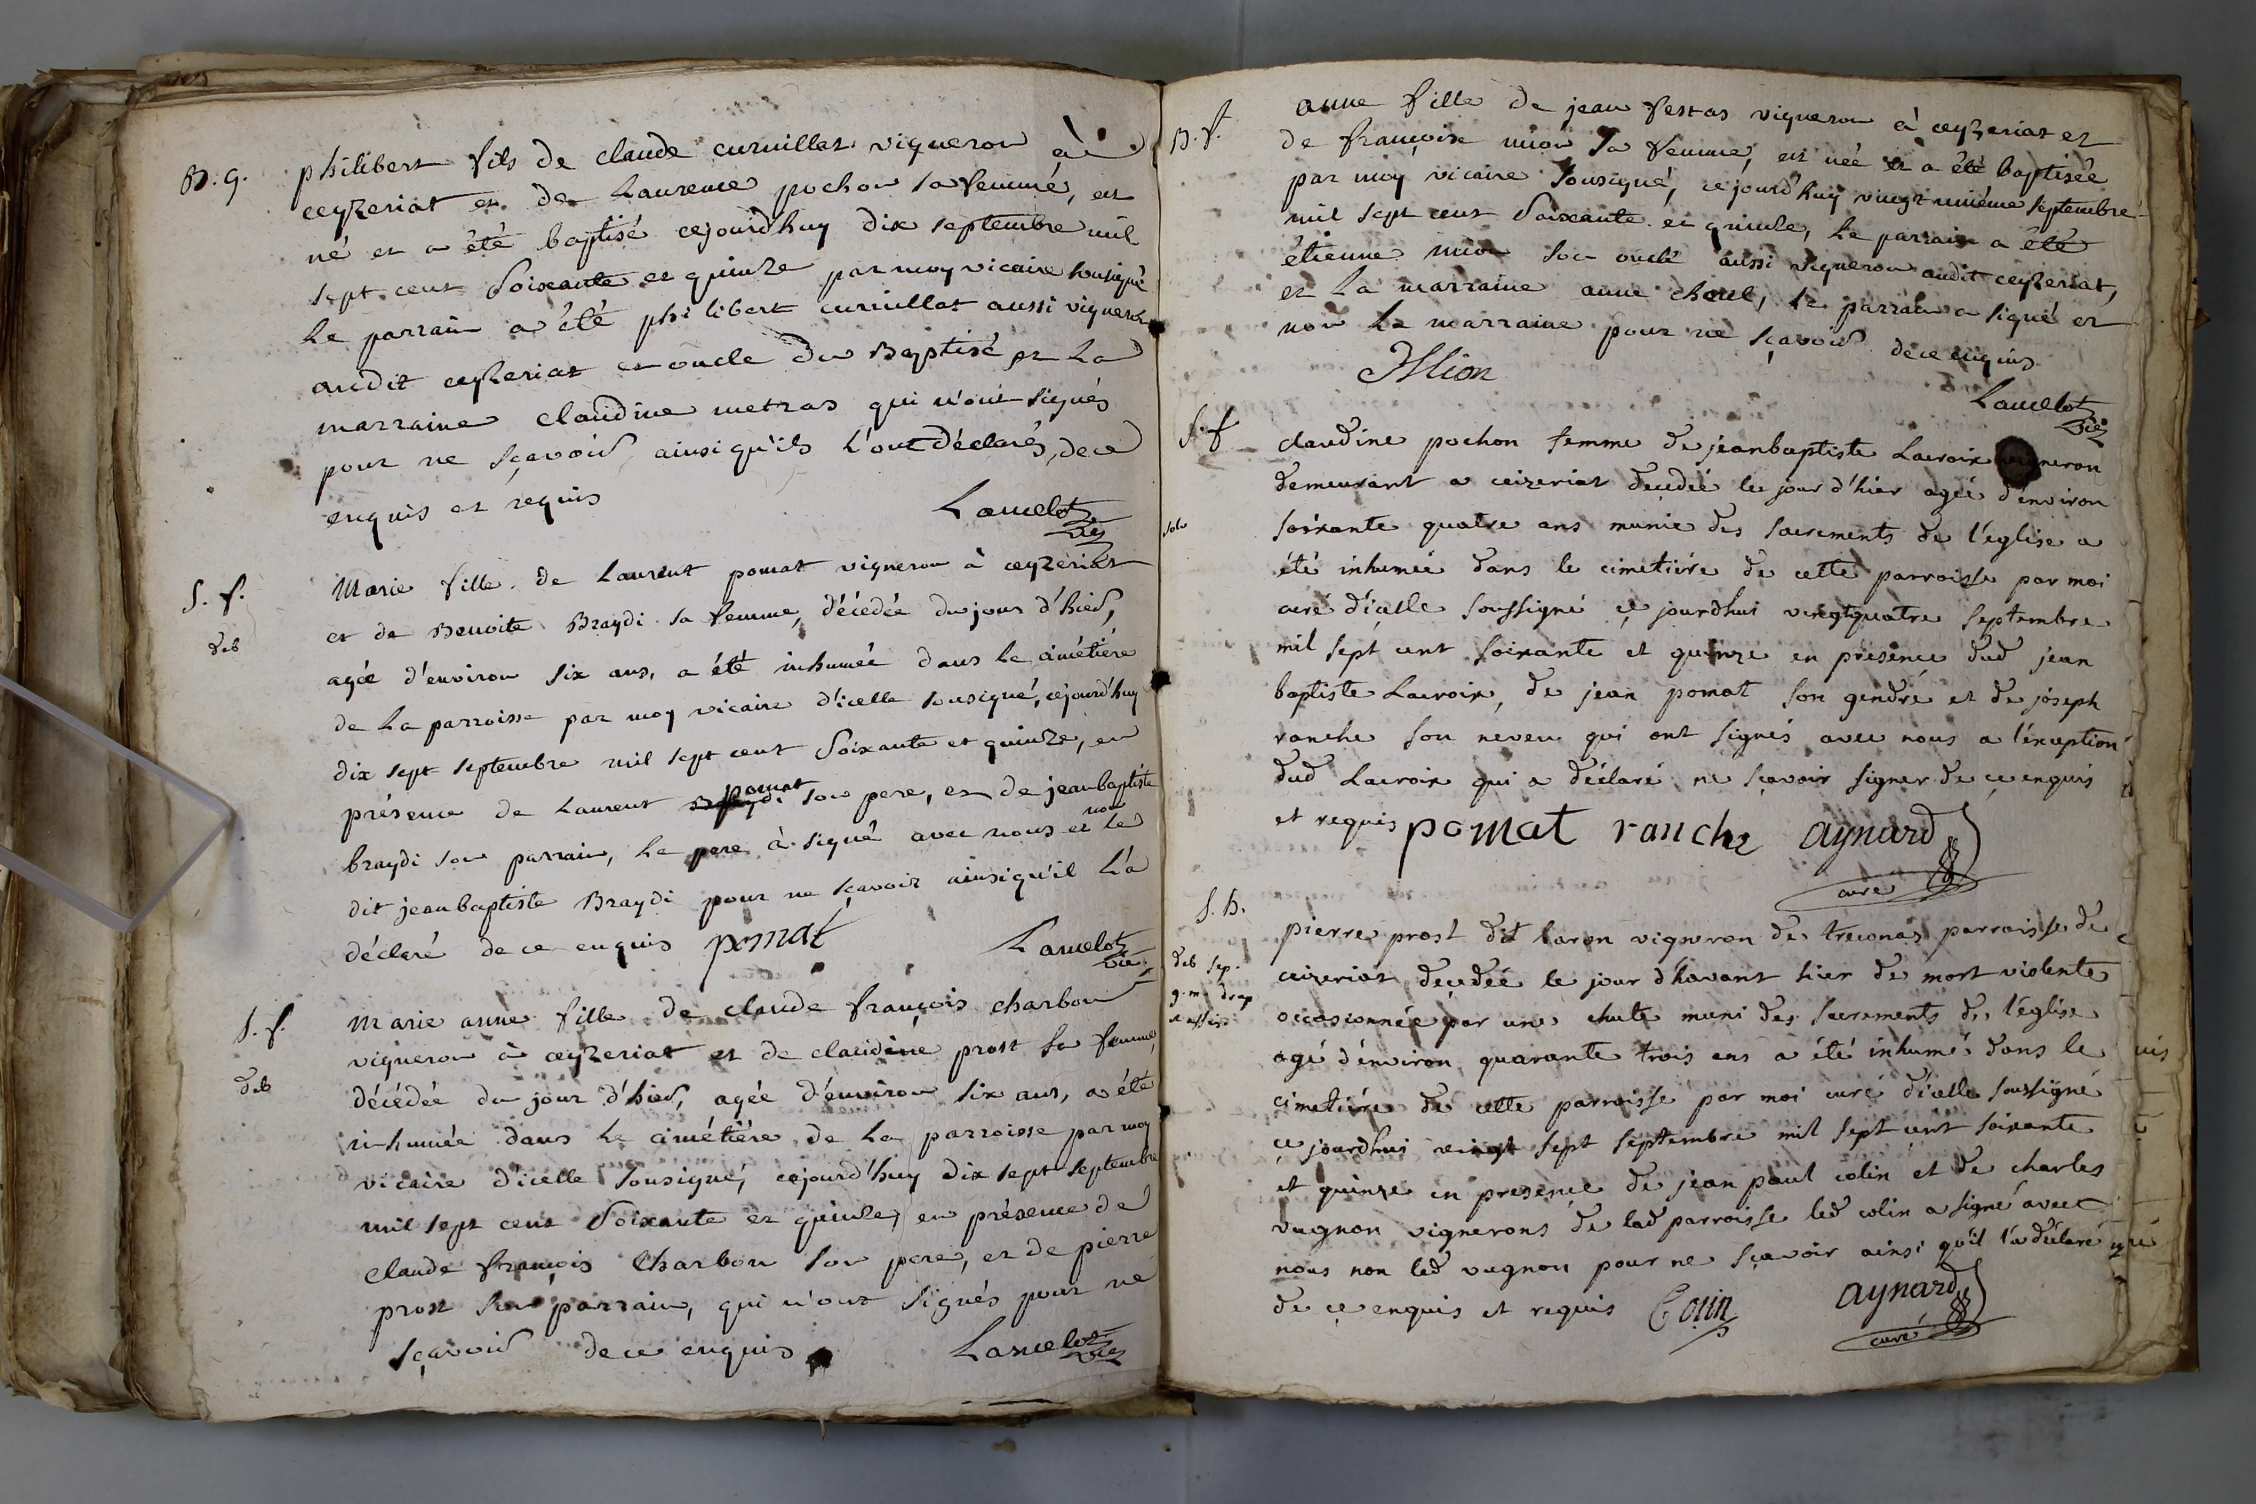 B. g.
philibert fils de claude curnillat vigneron à
ceyzeriat et de Laurence pochon sa femme, est
né et a été baptisé cejourd'huy dix septembre mil
sept cent soixante et quinze par moy vicaire sousigné
le parrain a été philibert curnillat aussi vigneron
audit ceyzeriat et oncle du Baptisé et la
marraine claudine metras qui n'ont signés
pour ne sçavoir ainsi qu'ils l'ont déclarés, de ce
enquis et requis
Lamelot
vic
S. f.
deb
Marie fille de Laurent pomat vigneron à ceyzeriat
et de Benoite Braydi sa femme, décédée du jour d'hier,
agée d'environ six ans, a été inhumée dans le cimétiére
de la parroisse par moy vicaire d'icelle sousigné, cejourd'huy
dix sept septembre mil sept cent soixante et quinze, en
présence de Laurent pomat son pere, et de jean baptiste
braydi son parrain, le pere à signé avec nous et non le
dit jean baptiste Braydi pour ne sçavoir ainsi qu'il l'a
déclaré de ce enquis pomat
Lamelot
vic
S. f.
deb
Marie anne fille de claude françois charbon
vigneron à ceyzeriat et de claudine prost sa femme,
décédée du jour d'hier, agée d'environ six ans, a été
inhumée dans le cimétiére de la parroisse par moy
vicaire d'icelle sousigné, cejourd'huy dix sept septembre
mil sept cent soixante et quinze, en présence de
claude françois Charbon son pere, et de pierre
prost son parrain, qui n'ont signés pour ne
sçavoir de ce enquis
Lamelot
vic
B. f.
anne fille de jean festas vigneron à ceyzeriat et
de françoise mion sa femme, est née et a été baptisée
par moy vicaire sousigné, cejourd'huy vingt uniéme septembre
mil sept cent soixante et quinze, le parrain a été
étienne mion son oncle aussi vigneron audit ceyzeriat,
et la marraine anne chanel, le parrain a signé et
non la marraine pour ne sçavoir de ce enquis
Mion
Lamelot
vic
S. f
solo
claudine pochon femme de jeanbaptiste Lacroix vigneron
demeurant a ceizeriat decedée le jour d'hier agée d'environ
soixante quatre ans munie des sacrements de l'église a
été inhumée dans le cimetiére de cette parroisse par moi
curé d'icelle soussigné ce jourdhui vingtquatre septembre
mil sept cent soixante et quinze en presence dud jean
baptiste Lacroix, de jean pomat son gendre et de joseph
ranche son neveu qui ont signés avec nous a l'exception
dud Lacroix qui a déclaré ne sçavoir signer de ce enquis
et requis pomat ranche aynard
curé
S. h.
deb sep.
g. m. drap
pierre prost dit baron vigneron de treconaz parroisse de
ceizeriat decedée le jour d'havant hier de mort violente
occasionnée par une chute muni des sacrements de l'église
agé d'environ quarante trois ans a été inhumé dans le
cimetiére de cette parroisse par moi curé d'icelle soussigné
ce jourdhui vingt sept septembre mil sept cent soixante
et quinze en presence de jean paul colin et de charles
vugnon vignerons de lad parroisse led colin a signé avec
nous non led vugnon pour ne sçavoir ainsi qu'il l'a déclaré
de ce enquis et requis Colin aynard
curé